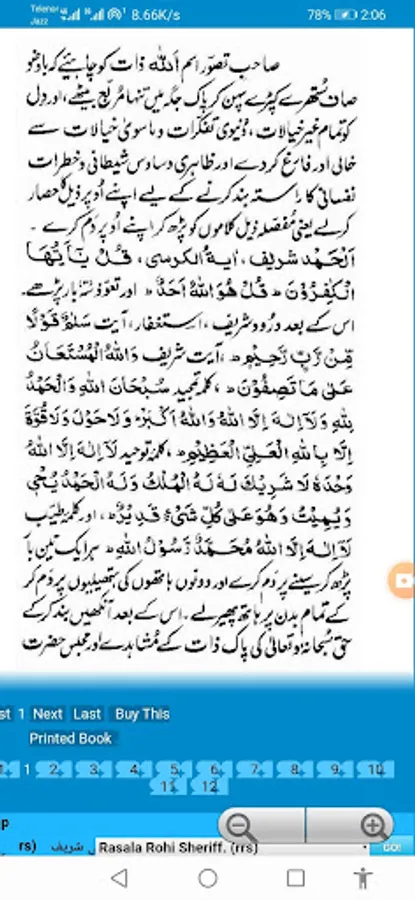 Telenor
Jazz
8.66K/s
78%
2:06
صاحب تصوّر اسم اَللّٰہ ذات کو چاہیئے کہ باوضو
صاف ستھرے کپڑے پہن کر پاک جگہ میں تنہا مربع بیٹھے، اور دِل
کو تمام غیر خیالات، دُنیوی تفکرات و ماسویٰ خیالات سے
خالی اور فارغ کر دے اور ظاہری وساوسِ شیطانی و خطرات
نفسانی کا راستہ بند کرنے کے لیے اپنے اُوپر ذیل کا حصار
کرلے یعنی مُفصلہ ذیل کلاموں کو پڑھ کر اپنے اُوپر دَم کرے۔
اَلْحَمْد شریف، اٰیۃ الکرسی، قُلْ یٰٓاَیُّهَا
الْکٰفِرُوْنَ، قُلْ هُوَ اللّٰهُ اَحَدٌ، اور تعوّذ بار پڑھے۔
اس کے بعد درُود شریف، استغفار، آیت سَلٰمٌ قَوْلًا
مِّنْ رَّبٍّ رَّحِیْمٍ، آیت شریف وَاللّٰهُ الْمُسْتَعَانُ
عَلٰی مَا تَصِفُوْنَ، کلمہ تمجید سُبْحَانَ اللّٰهِ وَالْحَمْدُ
لِلّٰهِ وَلَآ اِلٰهَ اِلَّا اللّٰهُ وَاللّٰهُ اَکْبَرُ وَلَا حَوْلَ وَلَا قُوَّةَ
اِلَّا بِاللّٰهِ الْعَلِیِّ الْعَظِیْمِ، کلمہ توحید لَآ اِلٰهَ اِلَّا اللّٰهُ
وَحْدَهٗ لَا شَرِیْكَ لَهٗ لَهُ الْمُلْكُ وَلَهُ الْحَمْدُ یُحْیٖ
وَیُمِیْتُ وَهُوَ عَلٰی کُلِّ شَیْءٍ قَدِیْرٌ، اور کلمہ طیّب
لَآ اِلٰهَ اِلَّا اللّٰهُ مُحَمَّدٌ رَّسُوْلُ اللّٰهِ ہر ایک تین بار
پڑھ کر سینے پر دَم کرے اور دونوں ہاتھوں کی ہتھیلیوں پر دَم کر
کے تمام بدن پر ہاتھ پھیرلے۔ اس کے بعد آنکھیں بند کرکے
حق سُبحانہٗ وتعالیٰ کی پاک ذات کے مُشاہدے اور مجلس حضرت
st 1 Next Last Buy This
Printed Book
1 2 3 4 5 6 7 8 9 10
11 12
p
rs) شریف Rasala Rohi Sheriff. (rrs) Go!